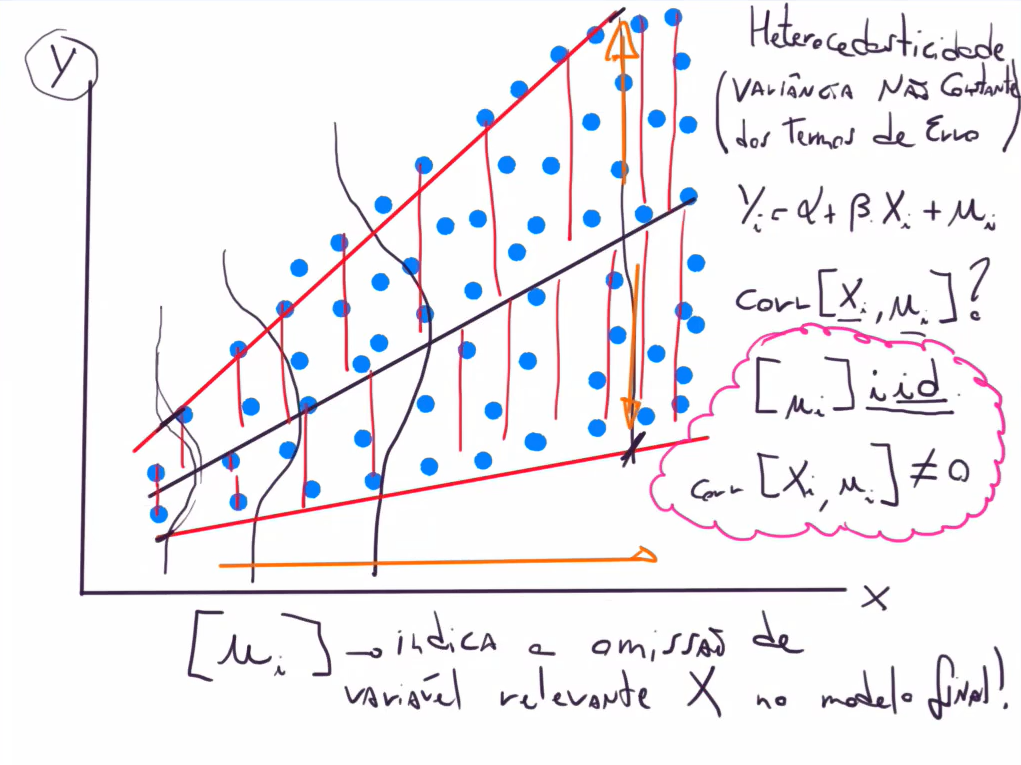 Y
Heterocedasticidade
(VARIÂNCIA NÃO Constante
dos Termos de Erro)
Yi = α + β. Xi + μi
corr [Xi, μi]?
[μi] iid
Corr [Xi, μi] ≠ 0
X
[μi] → indica a omissão de
variável relevante X no modelo final!